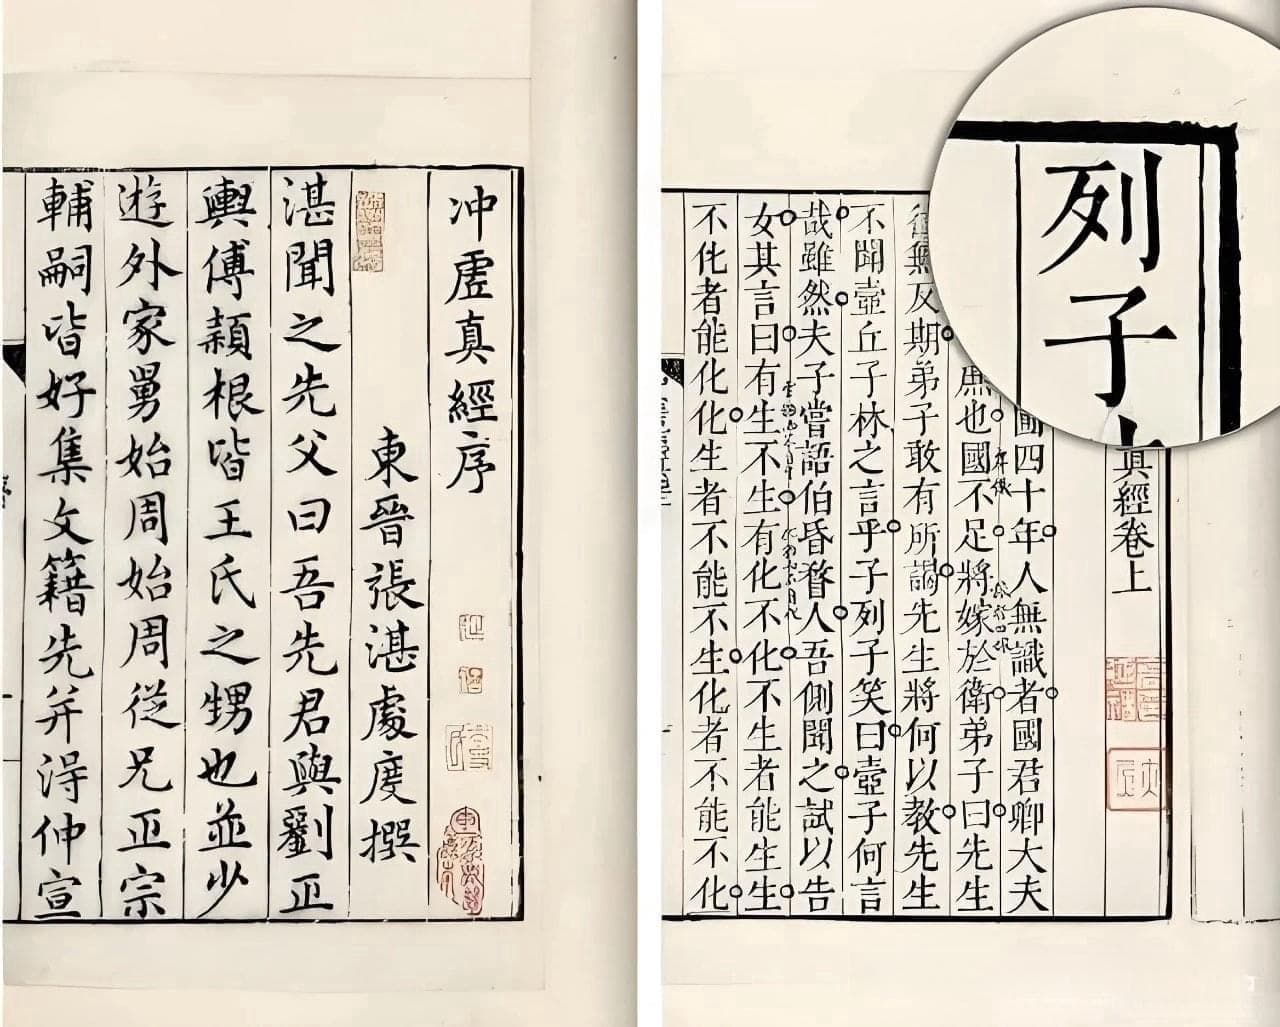 冲虛真經序
東晉張湛處度撰
湛聞之先父曰吾先君與劉正
輿傅穎根皆王氏之甥也並少
遊外家舅始周始周從兄正宗
輔嗣皆好集文籍先并得仲宣
列子
真經卷上
圃四十年人無識者國君卿大夫
庶也國不足將嫁於衛弟子曰先生
無反期弟子敢有所謁先生將何以教先生
不聞壺丘子林之言乎子列子笑曰壺子何言
哉雖然夫子嘗語伯昏瞀人吾側聞之試以告
女其言曰有生不生有化不化不生者能生生
不化者能化化生者不能不生化者不能不化